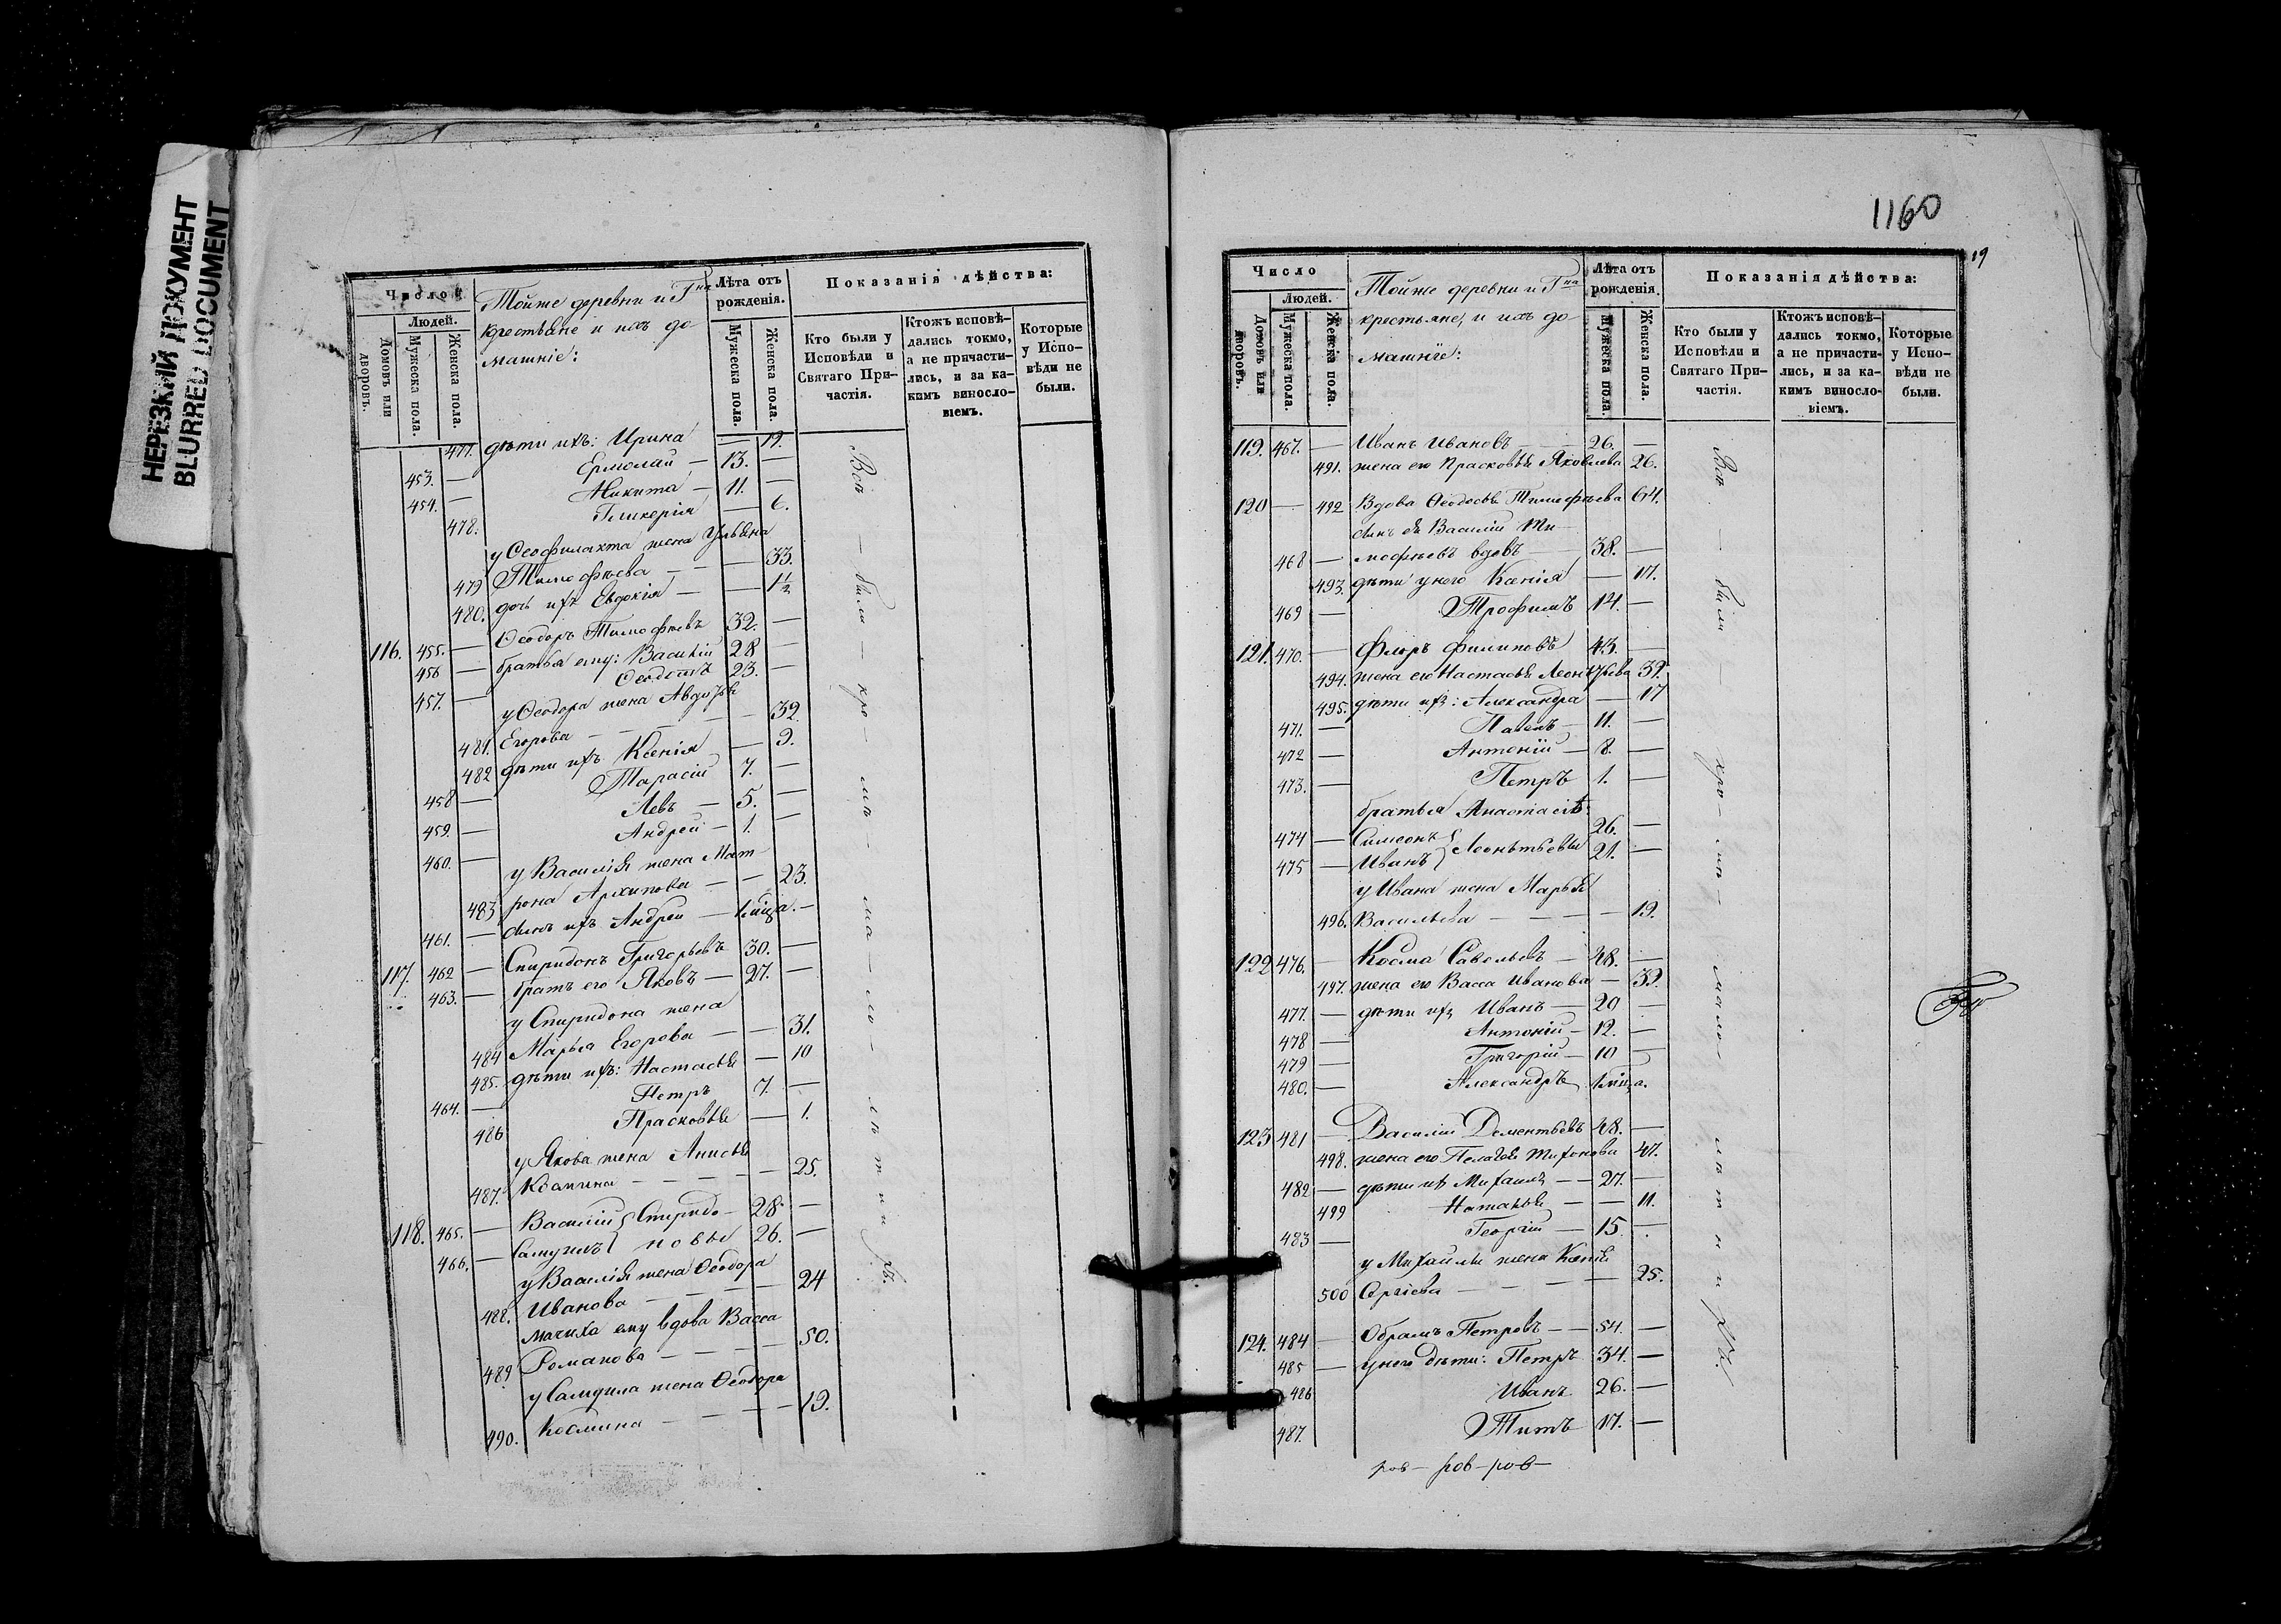 НЕРЕЗКИЙ ДОКУМЕНТ
BLURRED DOCUMENT
Число
Людей.
Домовъ или дворовъ.
Мужеска пола.
Женска пола.
Тойже деревни и Гна
крестьяне и ихъ до
машніе:
Лѣта отъ рожденія.
Мужеска пола.
Женска пола.
Показанія дѣйства:
Кто были у Исповѣди и Святаго При-частія.
Ктожъ исповѣ-дались токмо, а не причасти-лись, и за ка-кимъ винослo-віемъ.
Которые у Испо-вѣди не были.
477. дѣти ихъ: Ирина — 19.
453. — Ермолай — 13. —
454. — Никита — 11. —
478. Гликерія — 6.
у Ѳеофилахта жена Ульяна
479 Тимофѣева — — — 33.
480. дочь ихъ Евдокія — — 1 1/2
116. 455. — Ѳеодоръ Тимофѣевъ 32. —
456 — братья ему: Василій 28 —
457. — Ѳеодотъ 23. —
у Ѳеодора жена Авдотья
481. Егорова — — — — 32.
482 дѣти ихъ Ксенія — 9.
458 — Тарасій 7. —
459. — Левъ — 5. —
460. — Андрей — 1. —
у Василія жена Мат
483 рона Архипова — — 23.
461. — сынъ ихъ Андрей — 1 мѣца. —
117. 462 — Спиридонъ Григорьевъ 30. —
463. — братъ его Яковъ — 27. —
у Спиридона жена
484 Марья Егорова — — 31.
485. дѣти ихъ: Настасья — 10
464. — Петръ 7. —
486 Прасковья — 1.
у Якова жена Анисья
487. Косьмина — — — — 25.
118. 465. — Василій } Спиридо- 28 —
466. — Самуилъ } новы 26. —
у Василія жена Ѳеодора
488. Иванова — — — — 24
мачиха ему вдова Васса
489 Романова — — — — 50.
у Самуила жена Ѳеодора
490. Косьмина — — — — 19.
Всѣ — были — кро — мѣ — ма — ло — лѣтнихъ.
1160
19
Число
Людей.
Домовъ или дворовъ.
Мужеска пола.
Женска пола.
Тойже деревни и Гна
крестьяне, и ихъ до
машніе:
Лѣта отъ рожденія.
Мужеска пола.
Женска пола.
Показанія дѣйства:
Кто были у Исповѣди и Святаго При-частія.
Ктожъ исповѣ-дались токмо, а не причасти-лись, и за ка-кимъ винослo-віемъ.
Которые у Испо-вѣди не были.
119. 467. — Иванъ Ивановъ — — 26. —
491. жена его Прасковья Яковлева 26.
120 — 492 Вдова Ѳеодосья Тимофѣева 64.
сынъ ея Василій Ти-
468 — мофѣевъ вдовъ — 38. —
493. дѣти у него Ксенія — 17.
469 — Трофимъ 14. —
121. 470. — Флоръ Филиповъ 43. —
494. жена его Настасья Леонтьева 39.
495. дѣти ихъ: Александра — 17
471. — Павелъ — 11. —
472 — Антоній — 8. —
473. — Петръ 1. —
братья Анастасіѣ:
474 — Симеонъ } Леонтьевы 26. —
475 — Иванъ } 21. —
у Ивана жена Марья
496. Васильева — — — — 19.
122 476. — Косма Савельевъ — 48. —
497. жена его Васса Иванова — 39.
477. — дѣти ихъ Иванъ — 20 —
478 — Антоній — 12. —
479 — Григорій — 10 —
480. — Александръ 1 мѣца.
123 481 — Василій Дементьевъ 48. —
498. жена его Пелагея Тихонова 47.
482 — дѣти ихъ Михаилъ — — 27. —
499 Наталья — — 11.
483 — Георгій — 15 —
у Михаила жена Ксенія
500 Сергіева — — — — 25.
124. 484 — Обрамъ Петровъ — — 54. —
485 — у него дѣти: Петръ 34. —
486 Иванъ 26. —
487. Титъ 17. —
Всѣ — были — кро — мѣ — мало — лѣтнихъ.
ров — ров — ров —